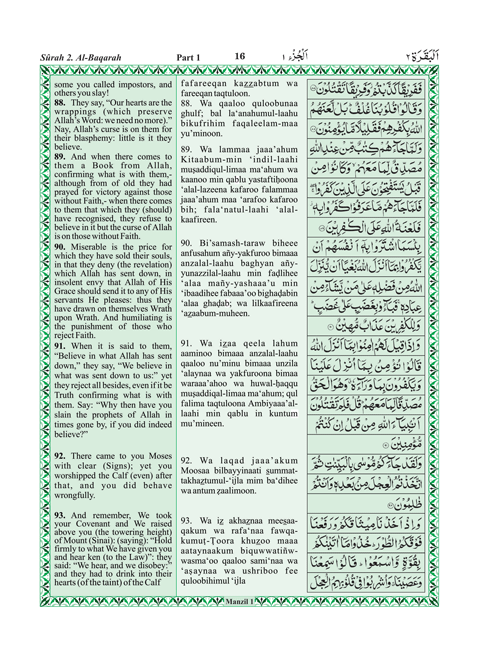 Sûrah 2. Al-Baqarah Part 1 16 اَلْجُزْءُ ١ اَلْبَقَرَة ٢
some you called impostors, and
others you slay!
88. They say, "Our hearts are the
wrappings (which preserve
Allah's Word: we need no more)."
Nay, Allah's curse is on them for
their blasphemy: little is it they
believe.
89. And when there comes to
them a Book from Allah,
confirming what is with them,-
although from of old they had
prayed for victory against those
without Faith,- when there comes
to them that which they (should)
have recognised, they refuse to
believe in it but the curse of Allah
is on those without Faith.
90. Miserable is the price for
which they have sold their souls,
in that they deny (the revelation)
which Allah has sent down, in
insolent envy that Allah of His
Grace should send it to any of His
servants He pleases: thus they
have drawn on themselves Wrath
upon Wrath. And humiliating is
the punishment of those who
reject Faith.
91. When it is said to them,
"Believe in what Allah has sent
down," they say, "We believe in
what was sent down to us:" yet
they reject all besides, even if it be
Truth confirming what is with
them. Say: "Why then have you
slain the prophets of Allah in
times gone by, if you did indeed
believe?"
92. There came to you Moses
with clear (Signs); yet you
worshipped the Calf (even) after
that, and you did behave
wrongfully.
93. And remember, We took
your Covenant and We raised
above you (the towering height)
of Mount (Sinai): (saying): "Hold
firmly to what We have given you
and hear ken (to the Law)": they
said: "We hear, and we disobey:"
and they had to drink into their
hearts (of the taint) of the Calf
fafareeqan kazzabtum wa
fareeqan taqtuloon.
88. Wa qaaloo quloobunaa
ghulf; bal la'anahumul-laahu
bikufrihim faqaleelam-maa
yu'minoon.
89. Wa lammaa jaaa'ahum
Kitaabum-min 'indil-laahi
musaddiqul-limaa ma'ahum wa
kaanoo min qablu yastaftiḥoona
'alal-lazeena kafaroo falammaa
jaaa'ahum maa 'arafoo kafaroo
bih; fala'natul-laahi 'alal-
kaafireen.
90. Bi'samash-taraw biheee
anfusahum aíy-yakfuroo bimaaa
anzalal-laahu baghyan aíy-
yunazzilal-laahu min faḍlihee
'alaa maíy-yashaaa'u min
'ibaadihee fabaaa'oo bighaḍabin
'alaa ghaḍab; wa lilkaafireena
'aẓaabum-muheen.
91. Wa iẓaa qeela lahum
aaminoo bimaaa anzalal-laahu
qaaloo nu'minu bimaaa unzila
'alaynaa wa yakfuroona bimaa
waraaa'ahoo wa huwal-ḥaqqu
musaddiqal-limaa ma'ahum; qul
falima taqtuloona Ambiyaaa'al-
laahi min qablu in kuntum
mu'mineen.
92. Wa laqad jaaa'akum
Moosaa bilbayyinaati ṡummat-
takhaẓtumul-'ijla mim ba'dihee
wa antum ẓaalimoon.
93. Wa iẓ akhaẓnaa meesaa-
qakum wa rafa'naa fawqa-
kumuṭ-Ṭoora khuẓoo maaa
aataynaakum biquwwatiñw-
wasma'oo qaaloo sami'naa wa
'aṣaynaa wa ushriboo fee
quloobihimul 'ijla
فَفَرِيْقًا كَذَّبْتُمْ وَفَرِيْقًا تَقْتُلُوْنَ ۝
وَقَالُوْا قُلُوْبُنَا غُلْفٌ ؕ بَلْ لَّعَنَهُمُ
اللّٰهُ بِكُفْرِهِمْ فَقَلِيْلًا مَّا يُؤْمِنُوْنَ ۝
وَلَمَّا جَآءَهُمْ كِتٰبٌ مِّنْ عِنْدِ اللّٰهِ
مُصَدِّقٌ لِّمَا مَعَهُمْ ۙ وَكَانُوْا مِنْ
قَبْلُ يَسْتَفْتِحُوْنَ عَلَى الَّذِيْنَ كَفَرُوْا ۚ
فَلَمَّا جَآءَهُمْ مَّا عَرَفُوْا كَفَرُوْا بِهٖ ؗ
فَلَعْنَةُ اللّٰهِ عَلَى الْكٰفِرِيْنَ ۝
بِئْسَمَا اشْتَرَوْا بِهٖۤ اَنْفُسَهُمْ اَنْ
يَّكْفُرُوْا بِمَاۤ اَنْزَلَ اللّٰهُ بَغْيًا اَنْ يُّنَزِّلَ
اللّٰهُ مِنْ فَضْلِهٖ عَلٰى مَنْ يَّشَآءُ مِنْ
عِبَادِهٖ ۚ فَبَآءُوْ بِغَضَبٍ عَلٰى غَضَبٍ ؕ
وَلِلْكٰفِرِيْنَ عَذَابٌ مُّهِيْنٌ ۝
وَاِذَا قِيْلَ لَهُمْ اٰمِنُوْا بِمَاۤ اَنْزَلَ اللّٰهُ
قَالُوْا نُؤْمِنُ بِمَاۤ اُنْزِلَ عَلَيْنَا
وَيَكْفُرُوْنَ بِمَا وَرَآءَهٗ ۗ وَهُوَ الْحَقُّ
مُصَدِّقًا لِّمَا مَعَهُمْ ؕ قُلْ فَلِمَ تَقْتُلُوْنَ
اَنْۢبِيَآءَ اللّٰهِ مِنْ قَبْلُ اِنْ كُنْتُمْ
مُّؤْمِنِيْنَ ۝
وَلَقَدْ جَآءَكُمْ مُّوْسٰى بِالْبَيِّنٰتِ ثُمَّ
اتَّخَذْتُمُ الْعِجْلَ مِنْۢ بَعْدِهٖ وَاَنْتُمْ
ظٰلِمُوْنَ ۝
وَاِذْ اَخَذْنَا مِيْثَاقَكُمْ وَرَفَعْنَا
فَوْقَكُمُ الطُّوْرَ ؕ خُذُوْا مَاۤ اٰتَيْنٰكُمْ
بِقُوَّةٍ وَّاسْمَعُوْا ؕ قَالُوْا سَمِعْنَا
وَعَصَيْنَا ۗ وَاُشْرِبُوْا فِيْ قُلُوْبِهِمُ الْعِجْلَ
Manzil 1